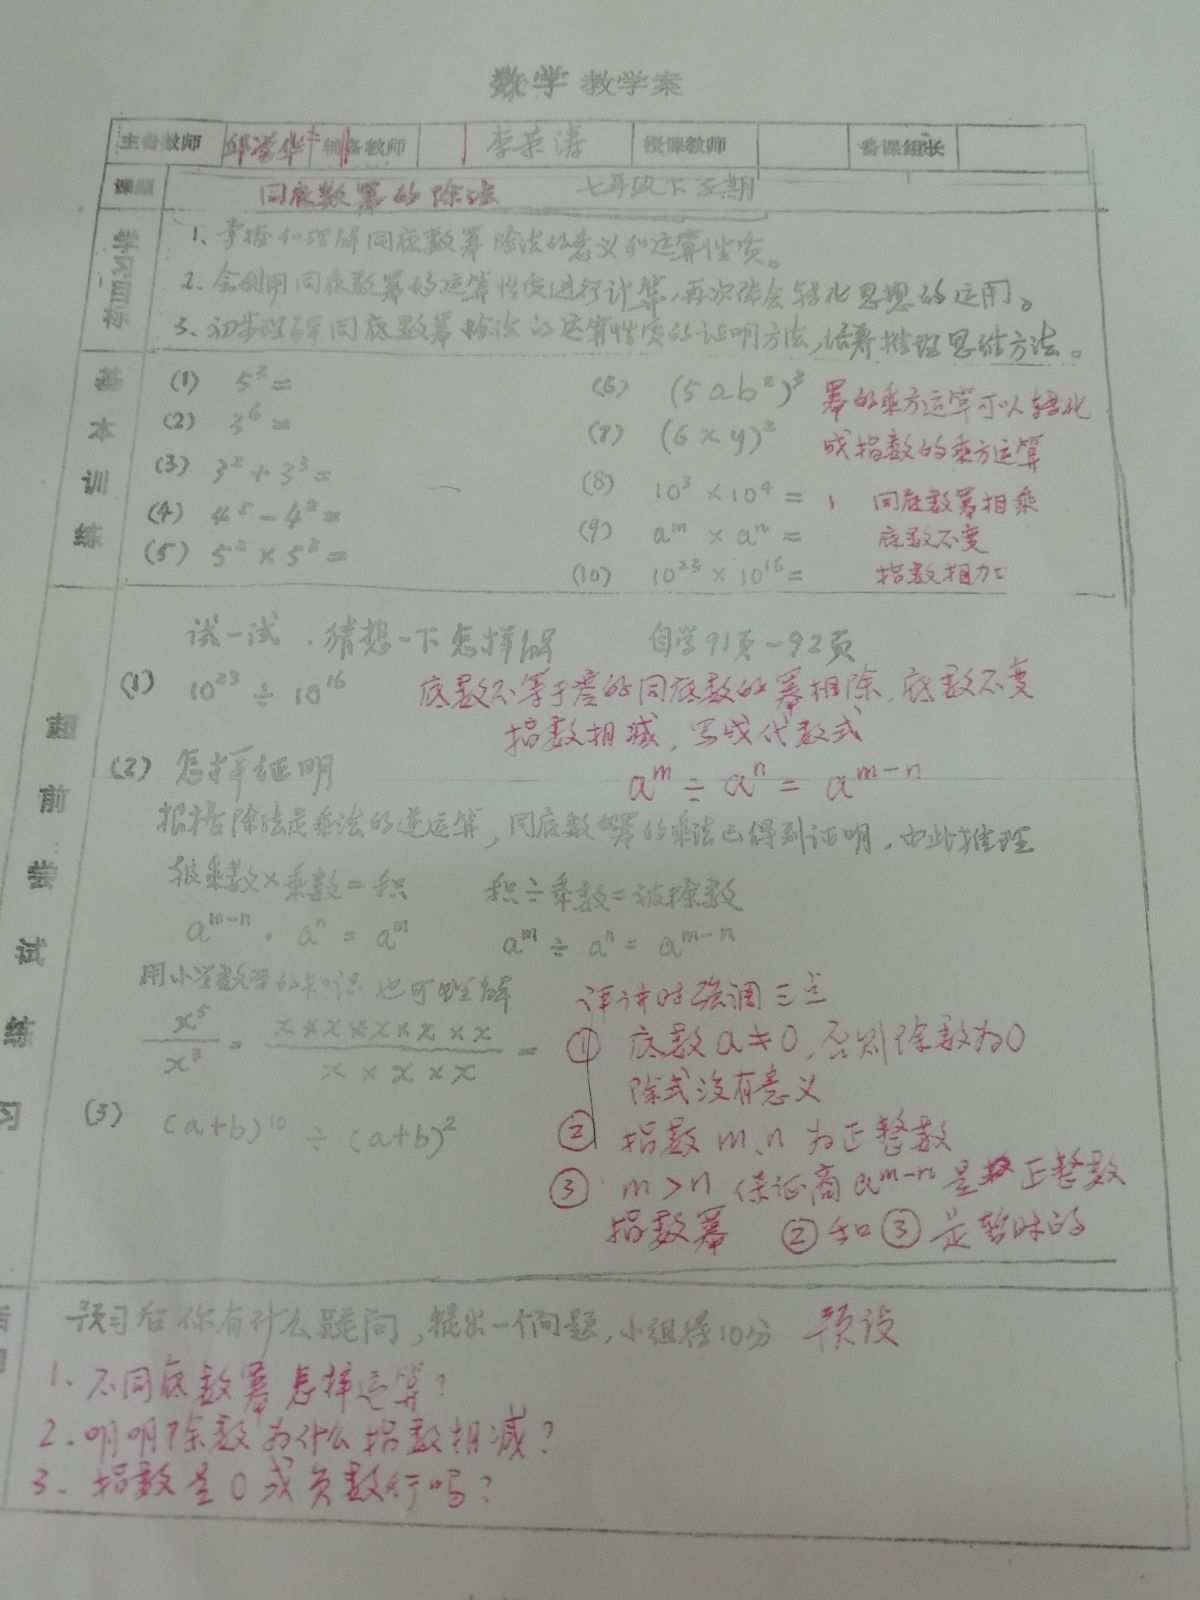 数学 教学案
主备教师 辅备教师 李荣涛 授课教师 备课组长
课题 同底数幂的除法 七年级下学期
学习目标
1、掌握和理解同底数幂除法的意义和运算性质。
2、会利用同底数幂的运算性质进行计算,再次体会转化思想的运用。
3、初步理解同底数幂除法的运算性质的证明方法,培养推理思维方法。
基本训练
(1) 5³=
(2) 3⁶=
(3) 3²+3³=
(4) 4⁵-4²=
(5) 5²×5³=
(6) (5ab²)³ 幂的乘方运算可以转化
(7) (6xy)² 成指数的乘方运算
(8) 10³×10⁴= 同底数幂相乘
(9) aᵐ×aⁿ= 底数不变
(10) 10²³×10¹⁶= 指数相加
超前尝试练习
试一试.猜想一下怎样解 自学91页-92页
(1) 10²³÷10¹⁶ 底数不等于零的同底数的幂相除,底数不变
指数相减,写成代数式
aᵐ÷aⁿ=aᵐ⁻ⁿ
(2) 怎样证明
根据除法是乘法的逆运算,同底数幂的乘法已得到证明,由此推理
被乘数×乘数=积 积÷乘数=被除数
aᵐ⁻ⁿ·aⁿ=aᵐ aᵐ÷aⁿ=aᵐ⁻ⁿ
用小学数学的知识也可理解
x⁵/x³=x×x×x×x×x/x×x×x=
(3) (a+b)¹⁰÷(a+b)²
评讲时强调三点
① 底数a≠0,否则除数为0
除式没有意义
② 指数m、n为正整数
③ m>n 保证商aᵐ⁻ⁿ是正整数
指数幂 ②和③是暂时的
预习后你有什么疑问,提出一个问题,小组得10分 预设
1、不同底数幂怎样运算?
2、明明除数为什么指数相减?
3、指数是0或负数行吗?